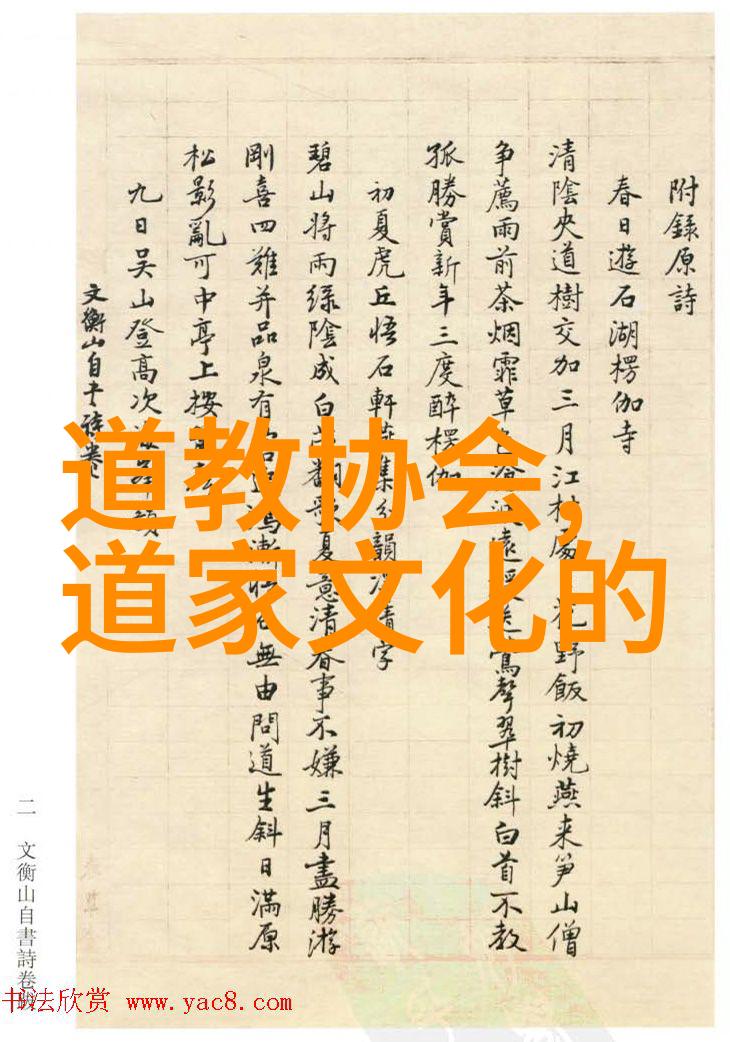 附錄原詩
春日遊石湖楞伽寺
清陰夾道樹交加三月江村 花野飯初燒燕来笋山僧
争薦雨前茶烟霏草色 遠 鶯聲翠樹斜白首不教
孤勝賞新年三度醉楞伽
初夏虎丘悟石軒燕集分韻得清字
碧山將雨緑陰成白苧翻歌夏意清春事不嫌三月盡勝游
剛喜四難并品泉有 無由問道生斜日滿原
松影亂可中亭上按
九日吴山登高次
文衡山自书诗卷
道教协会,
道家文化的
二 文衡山自書詩卷跋
书法欣赏 www.yac8.com